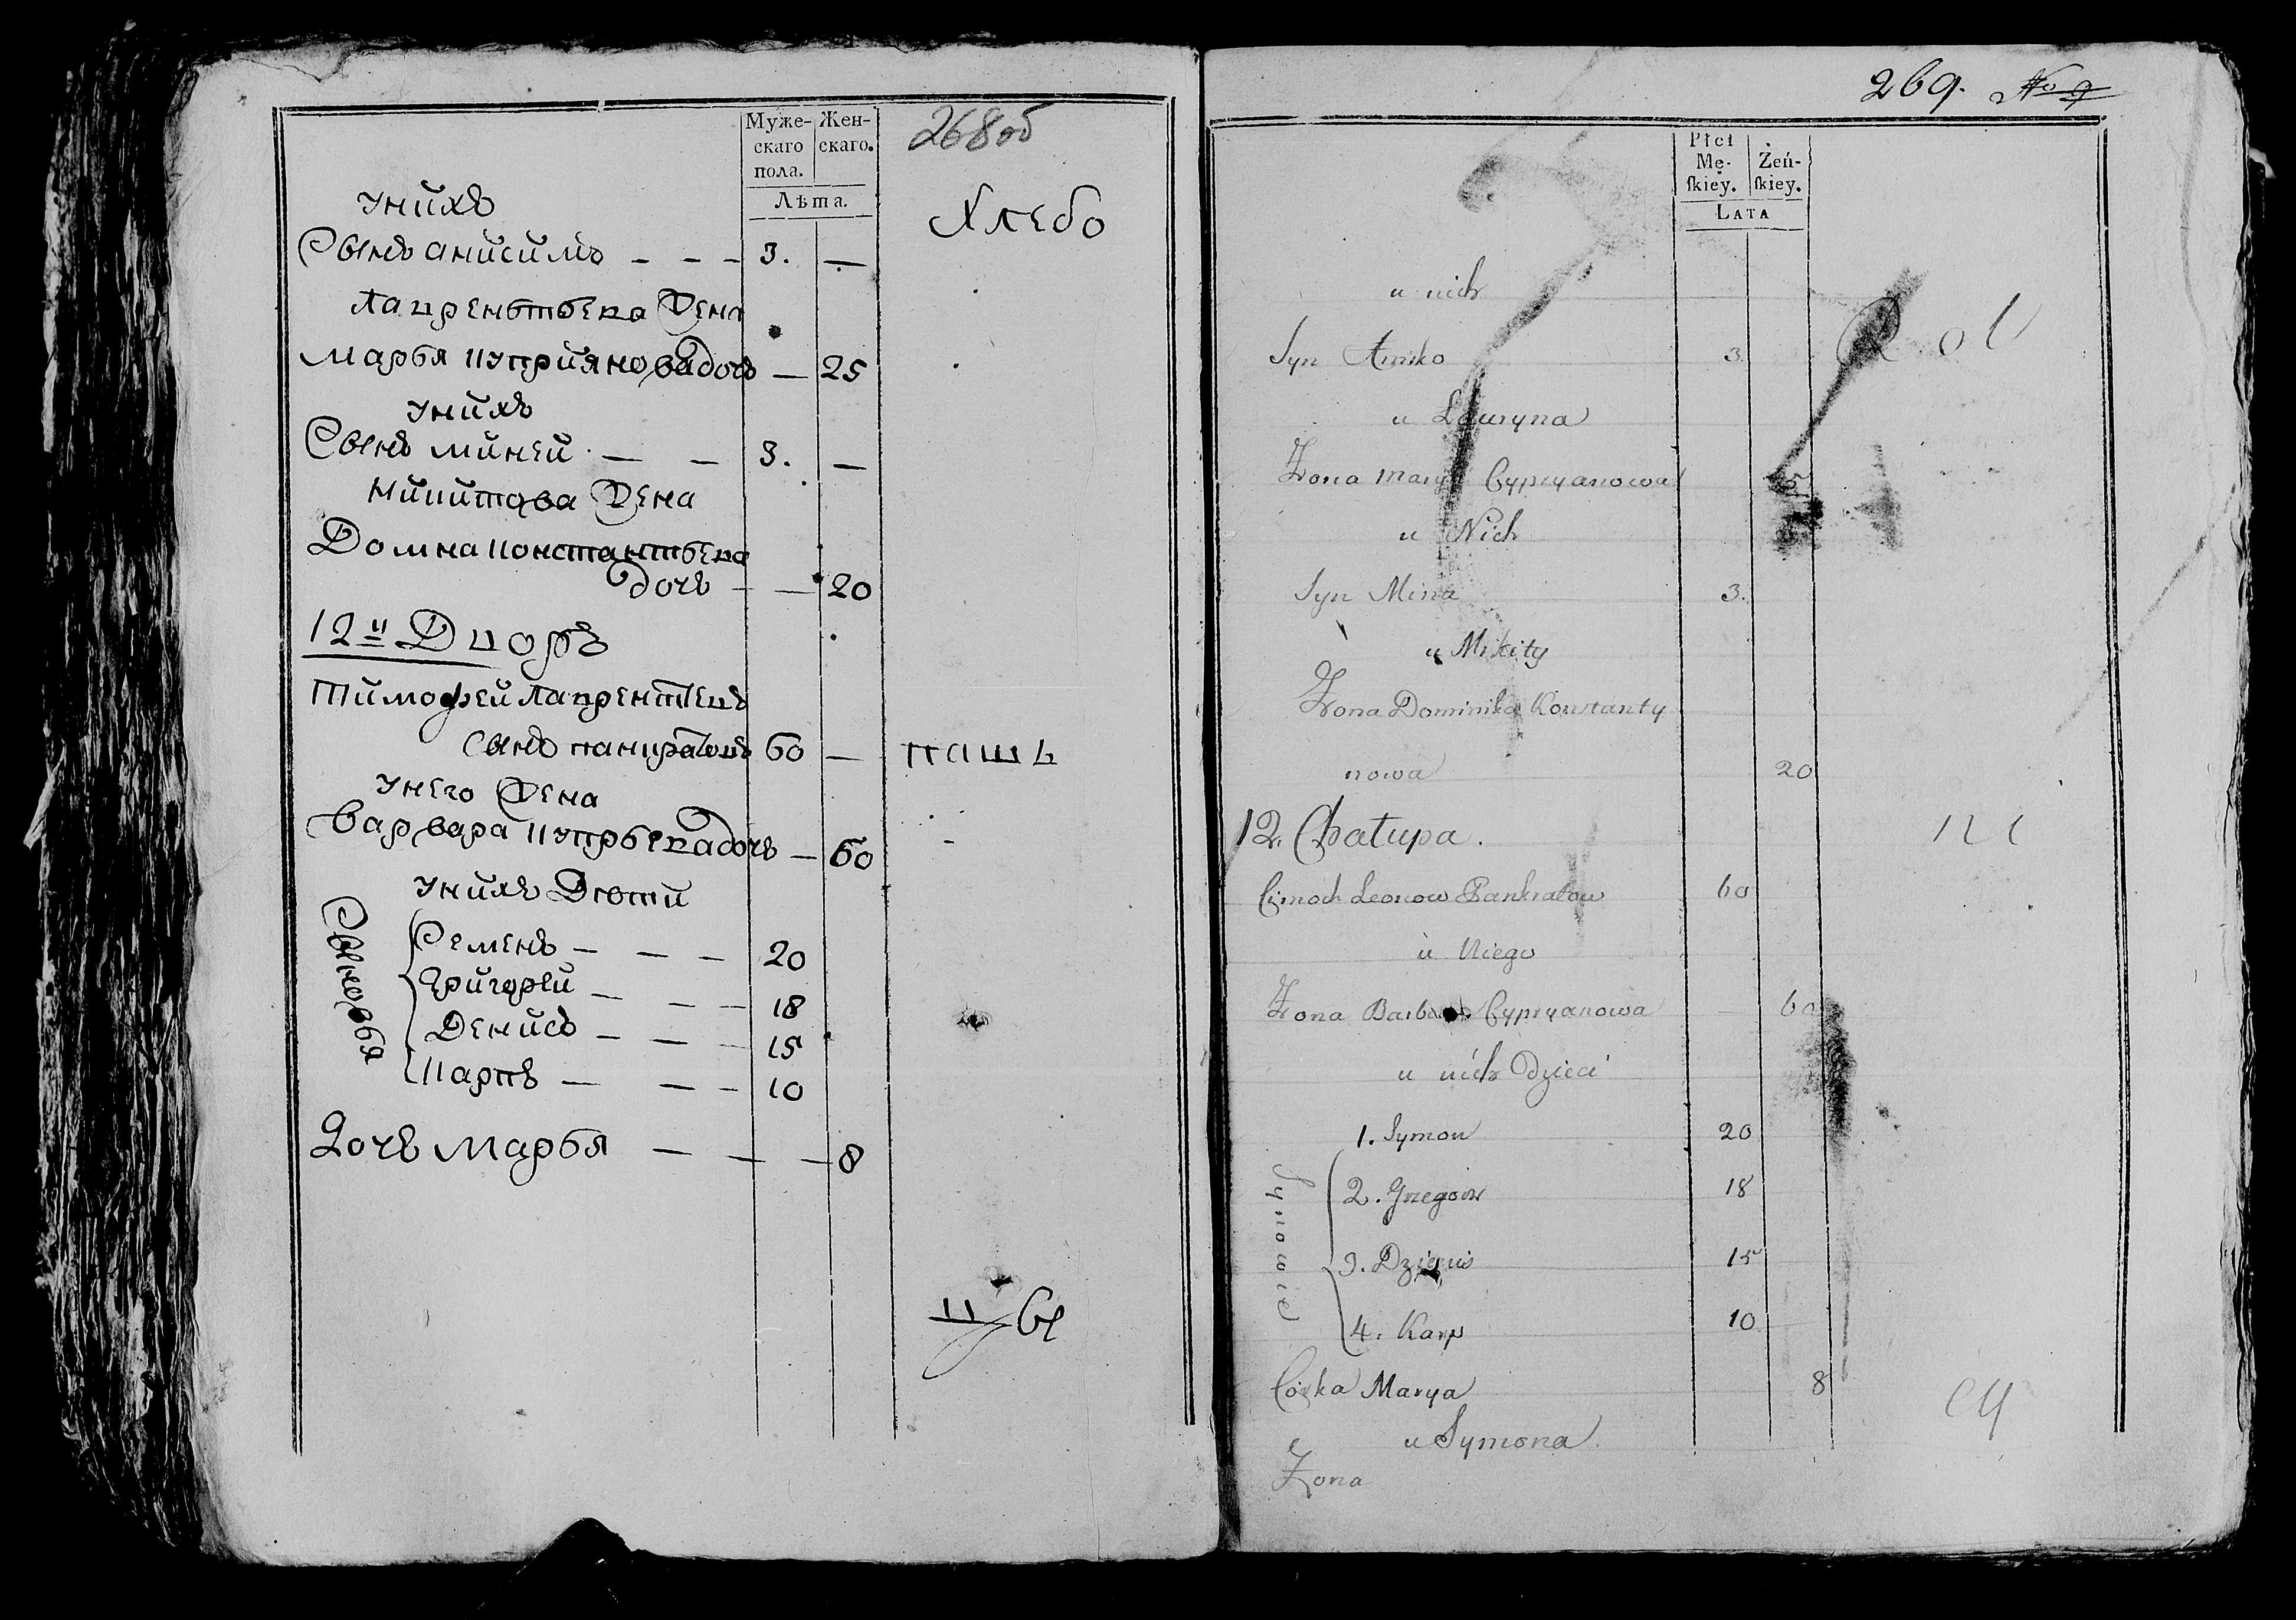 268об
Муже- Жен-
скаго скаго.
пола.
Лѣта.
Хлебо
Унихъ
Сынъ анисимъ — — — 3. —
Лаврентьева Жена
Марья Куприяновадочь — 25
Унихъ
Сынъ миней — — 3. —
Никитова Жена
Домна Константьева
дочь — — 20
12й Дворъ
Тимофей Лаврентьевъ
сынъ панкратовъ 60 — пашъ
Унего Жена
Варвара Купрьевадочь — 60
Унихъ Дѣти
Сыновья
Семенъ — — — 20
Григорей — — — 18
Денисъ — — — 15
Карпъ — — — 10
Дочь Марья — — — 8
269. No 9
Płci
Mę- Żeń-
skiey. skiey.
LATA
u nich
Syn 3.
u Lauryna
Żona Marya Cypryanowa 25
u Nich
Syn Mina 3.
u Mikity
Żona Dominika Konstanty
nowa 20
12. Chałupa.
Cimoch Leonow Pankratow 60
u Niego
Żona Barbara Cypryanowa — 60
u nich Dzieci
Synowie
1. Symon 20
2. Grzegorz 18
3. Dzienis 15
4. Karp 10
Córka Marya 8
u Symona.
Żona